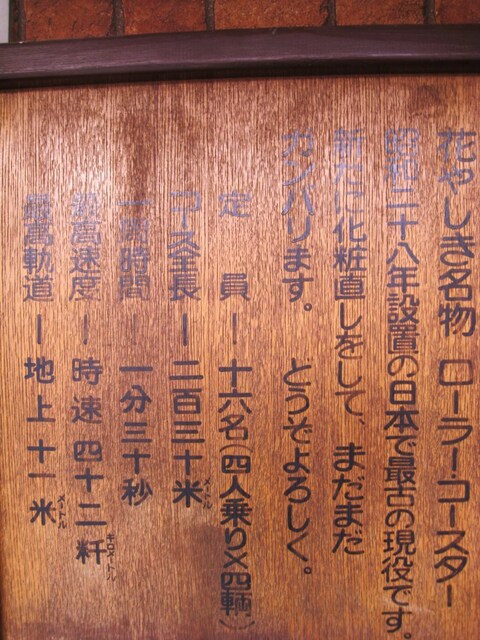 花やしき名物 ローラーコースター
昭和二十八年設置の日本で最古の現役です
新たに化粧直しをして、まだまだ
ガンバリます。 どうぞよろしく。
定員ー十六名(四人乗り×四輌)
コース全長ー二百三十米メートル
一周時間ー一分三十秒
最高速度ー時速四十二粁キロメートル
最高軌道ー地上十一米メートル